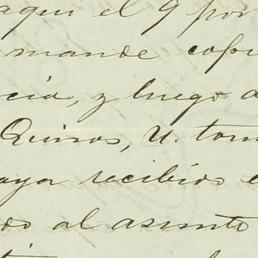 aqui el 9 por
mande copi
cia, y luego d
Quiros, U. tom
aya recibido e
do al asunto